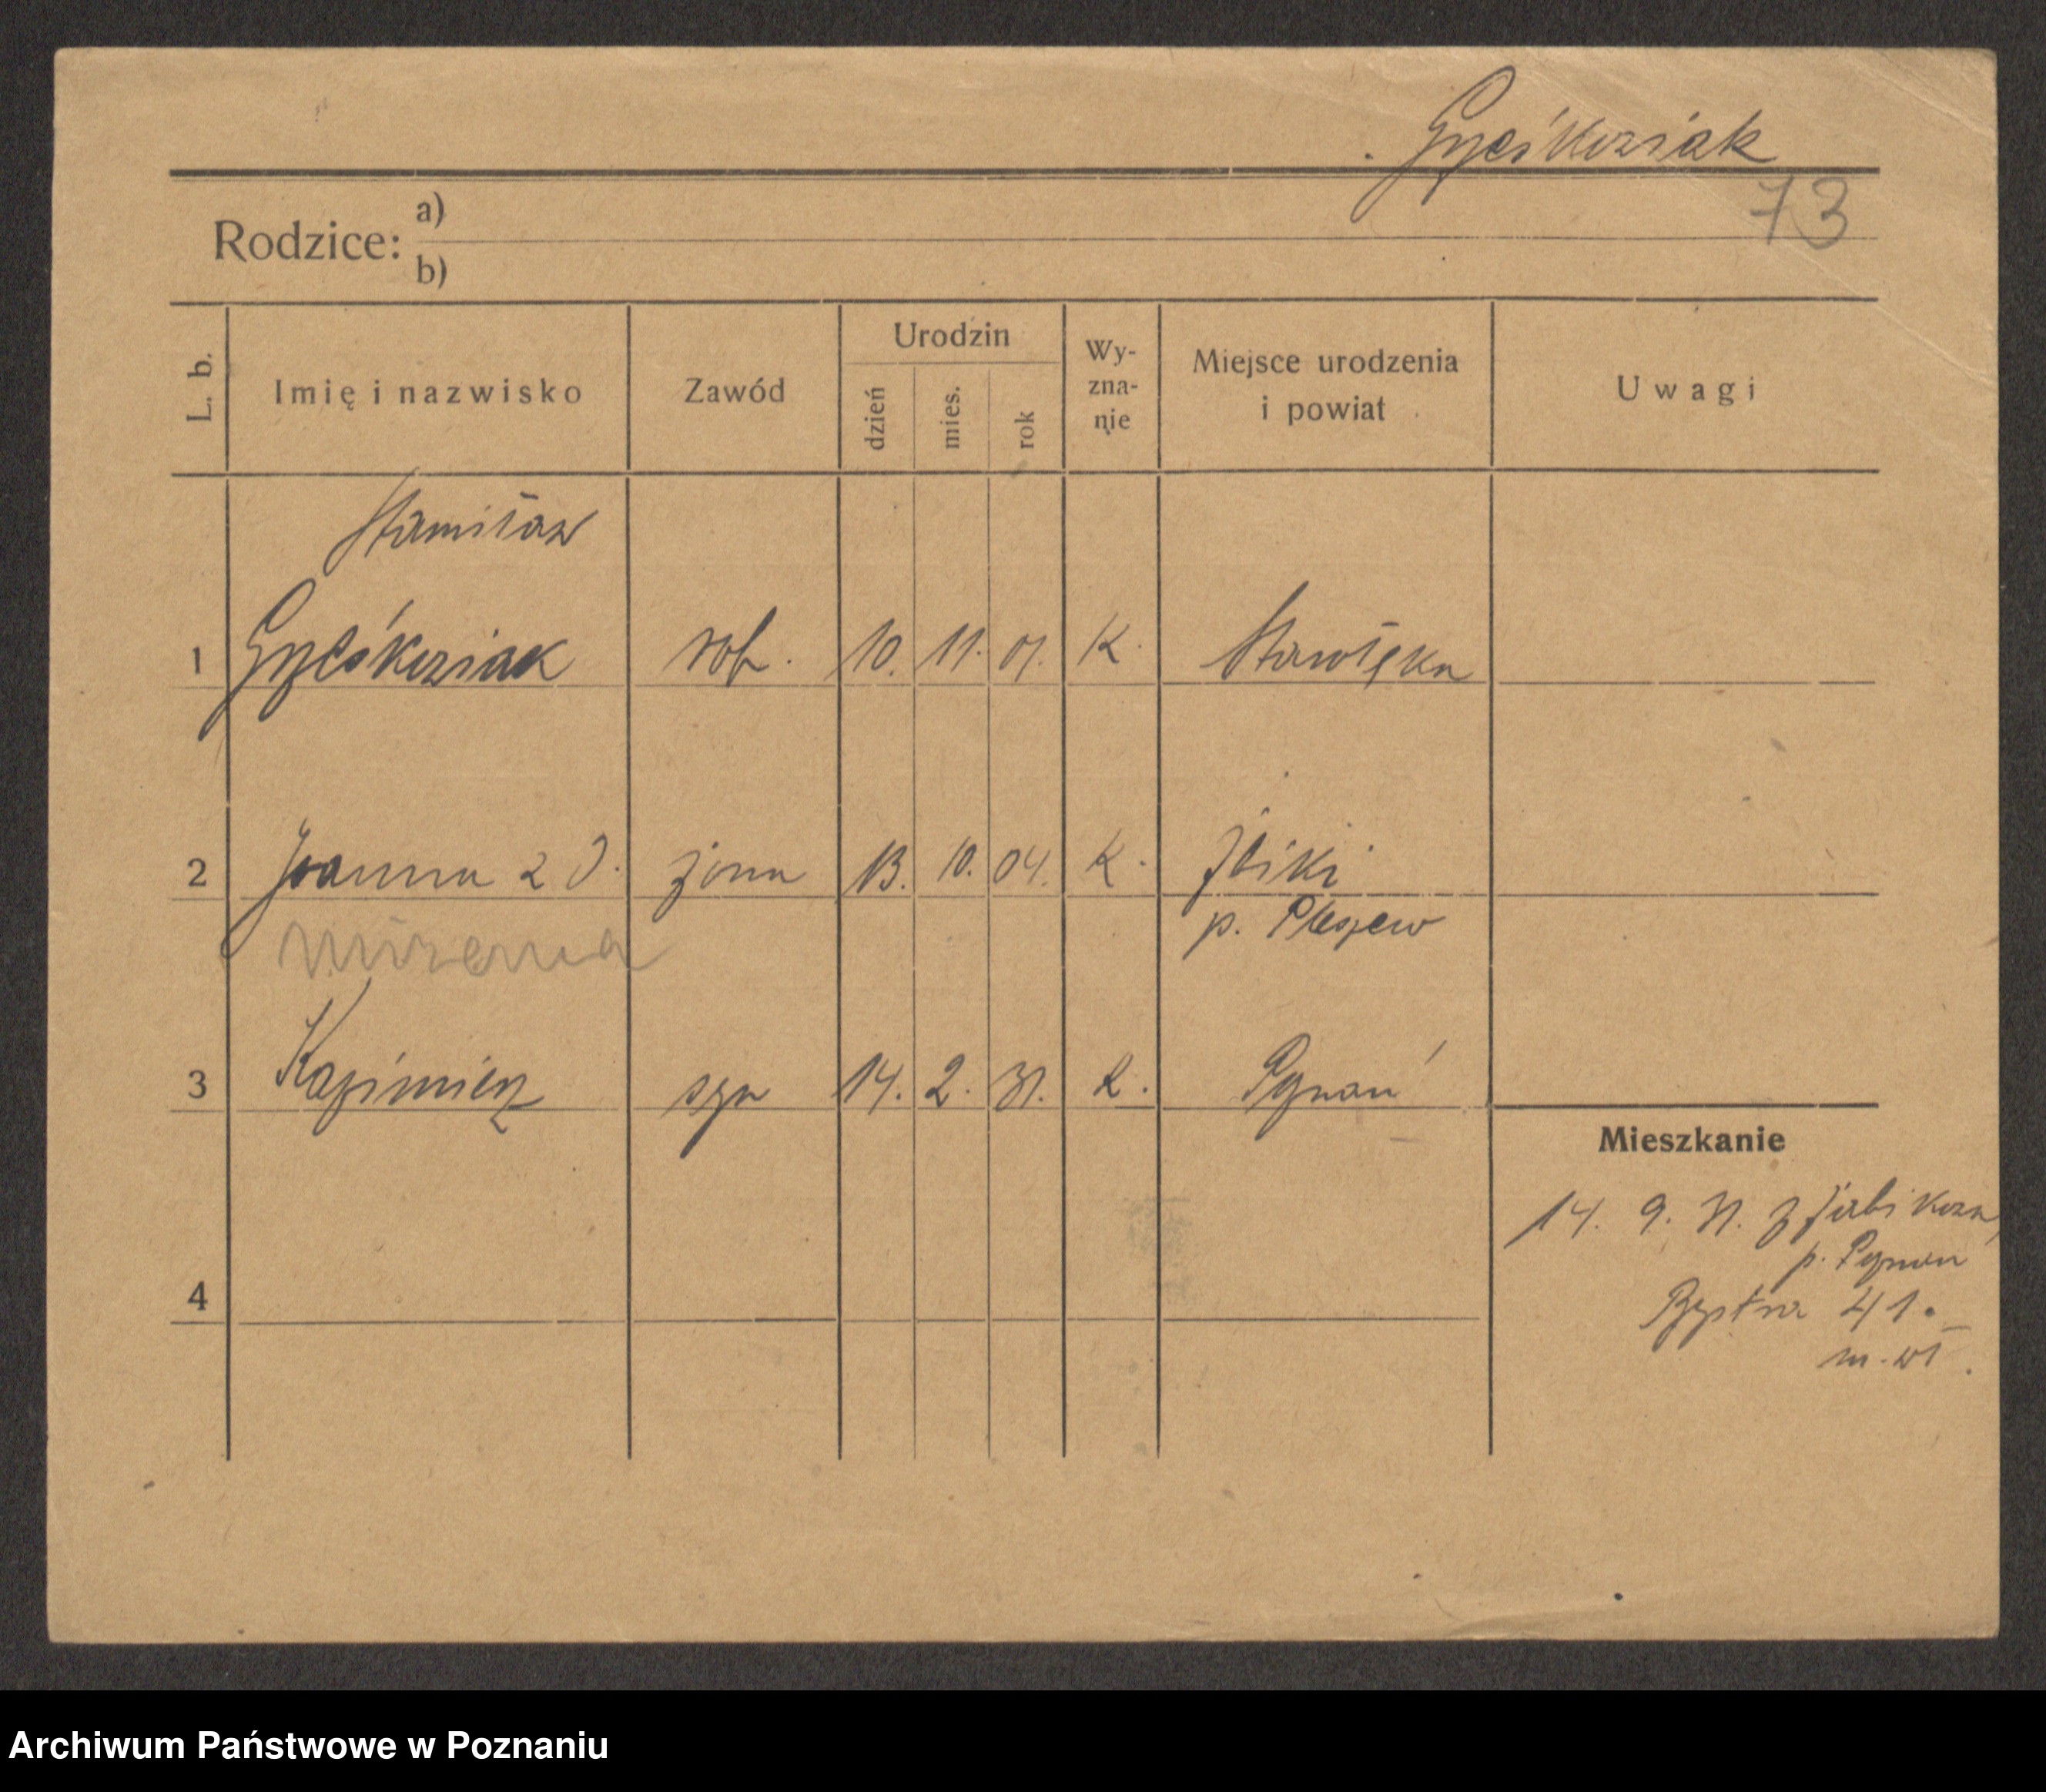 Gześkowiak
73
Rodzice:
a)
b)
L. b.
Imię i nazwisko
Zawód
Urodzin
dzień
mies.
rok
Wy-
zna-
nie
Miejsce urodzenia
i powiat
Uwagi
Stanisław
1 Gześkowiak rob. 10. 11. 01. K. Starołęka
2 Joanna z d. żona 13. 10. 04. K.
p. Pleszew
3 Kazimierz syn 14. 2. 31. k. Poznań
Mieszkanie
14. 9. 31. z Żabikowa
p. Poznan
4
Bystra 41.
m. wł.
Archiwum Państwowe w Poznaniu